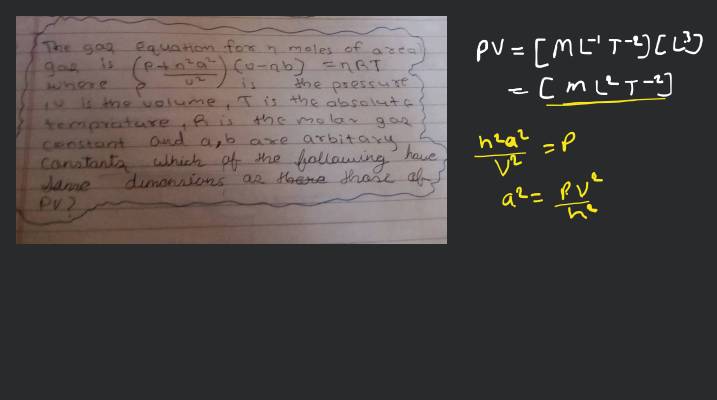 The gas equation for n moles of area
gas is (P+n²a²/v²) (v-nb) = nRT
where P is the pressure
,v is the volume, T is the absolute
temprature, R is the molar gas
constant and a,b are arbitary
constants which of the following have
same dimensions as there those of
PV?
PV = [ML⁻¹T⁻²][L³]
= [ML²T⁻²]
n²a²/V² = P
a² = PV²/n²